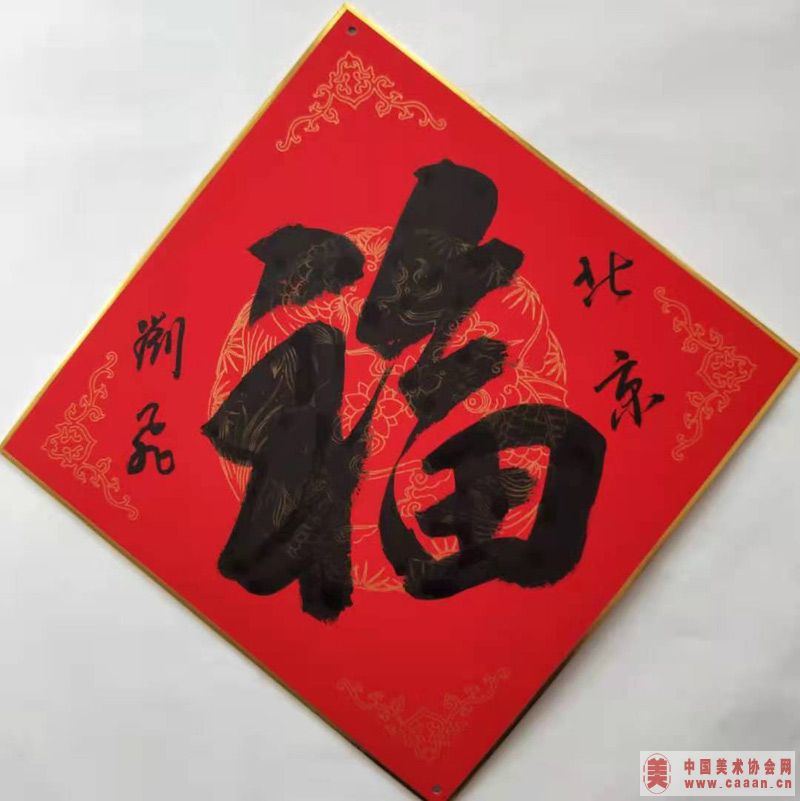 福
北京
劉飛
美 中国美术协会网
www.caaan.cn